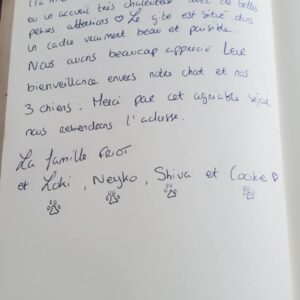 eu un accueil très chaleureux avec de belles
petites attentions ♡ Le gîte est situé dans
un cadre vraiment beau et paisible.
Nous avons beaucoup apprécié Leur
bienveillance envers notre chat et nos
3 chiens. Merci par cet agréable séjour
nous retiendrons l'adresse.
La famille FRIOT
et Loki, Neyko, Shiva et Cookie ♡